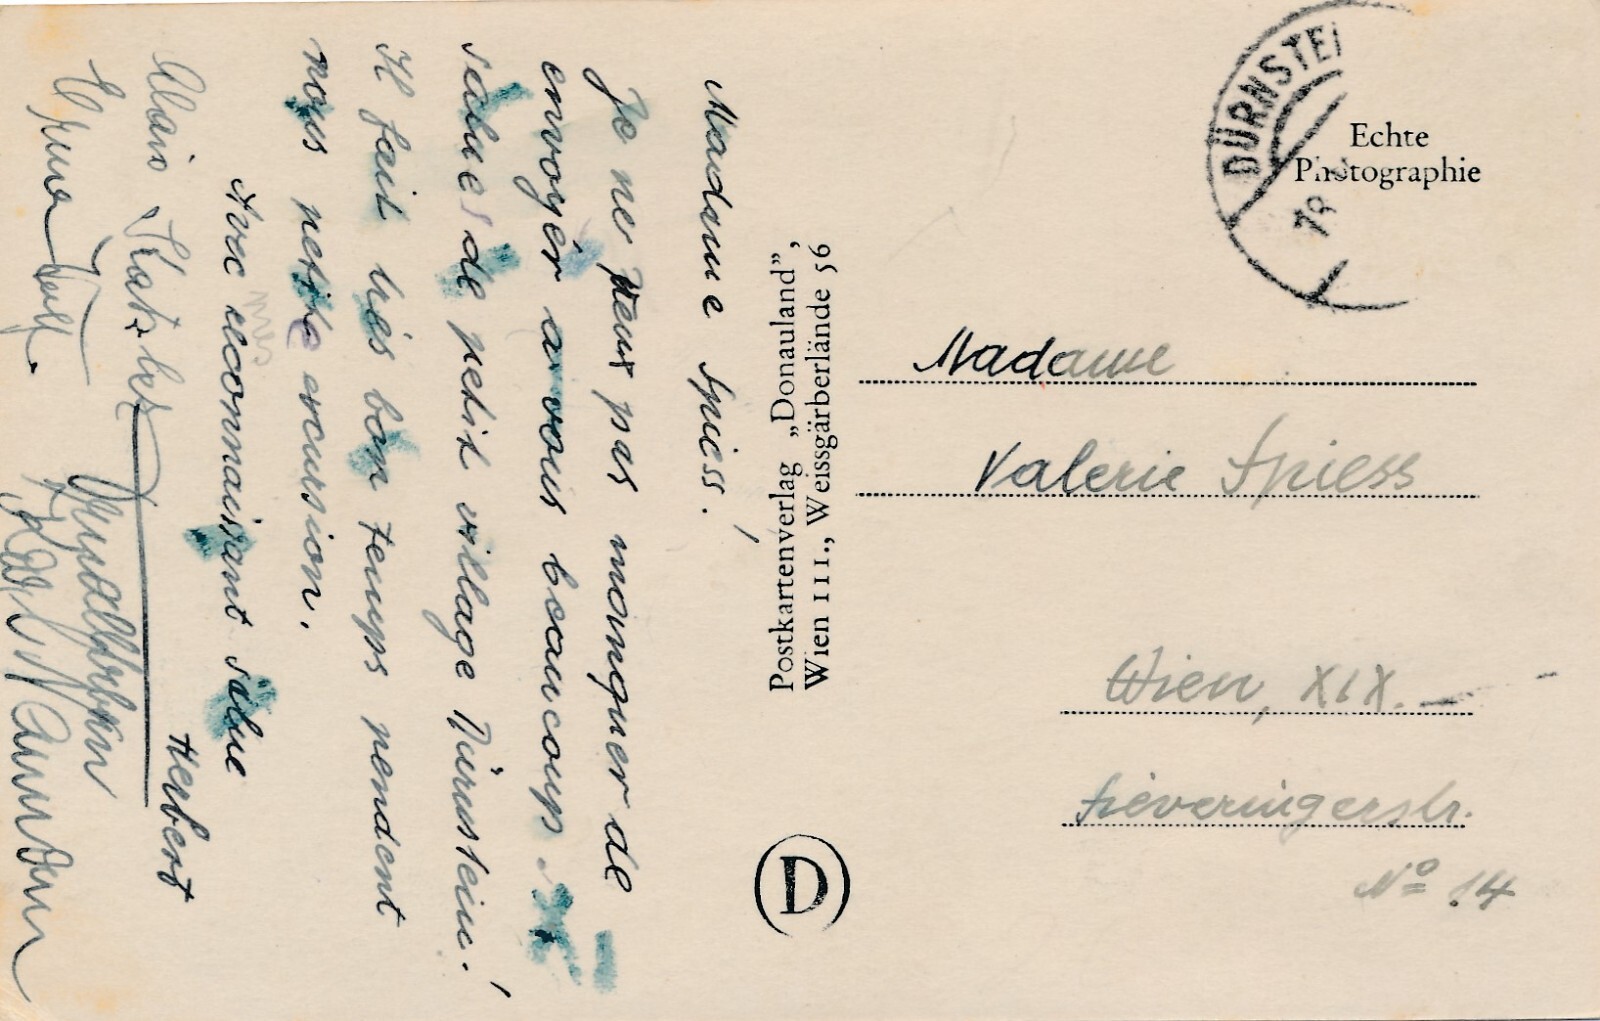 Madame Spiess!
Je ne veux pas manquer de
envoyer a vous beaucoup
salues de petit village Dürnstein!
Il fait très bon temps pendent
nous petite excursion.
Avec reconnaissant salue
Herbert
Erna
Postkartenverlag „Donauland",
Wien III., Weissgärberlände 56
D
DÜRNSTEI
18
Echte
Photographie
Madame
Valerie Spiess
Wien, XIX.
Sieveringerstr.
Nº 14